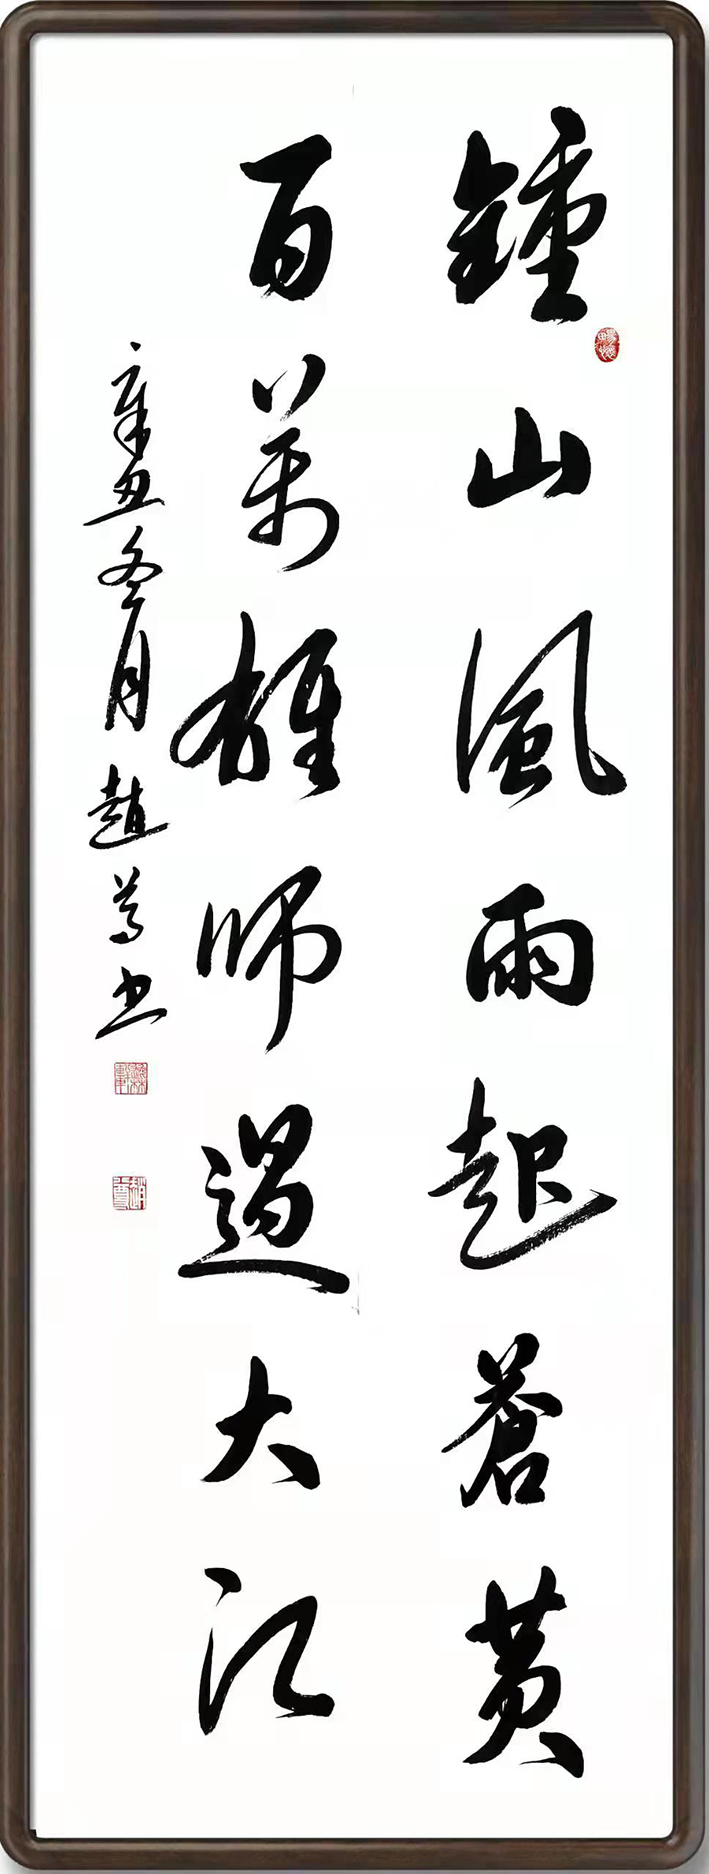 鍾山風雨起蒼黄
百萬雄師過大江
辛丑冬月趙㝵书